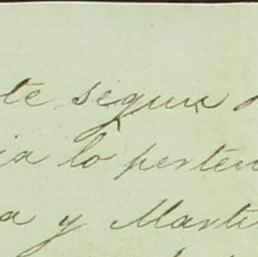 te segun
ia lo perten
a y Marti